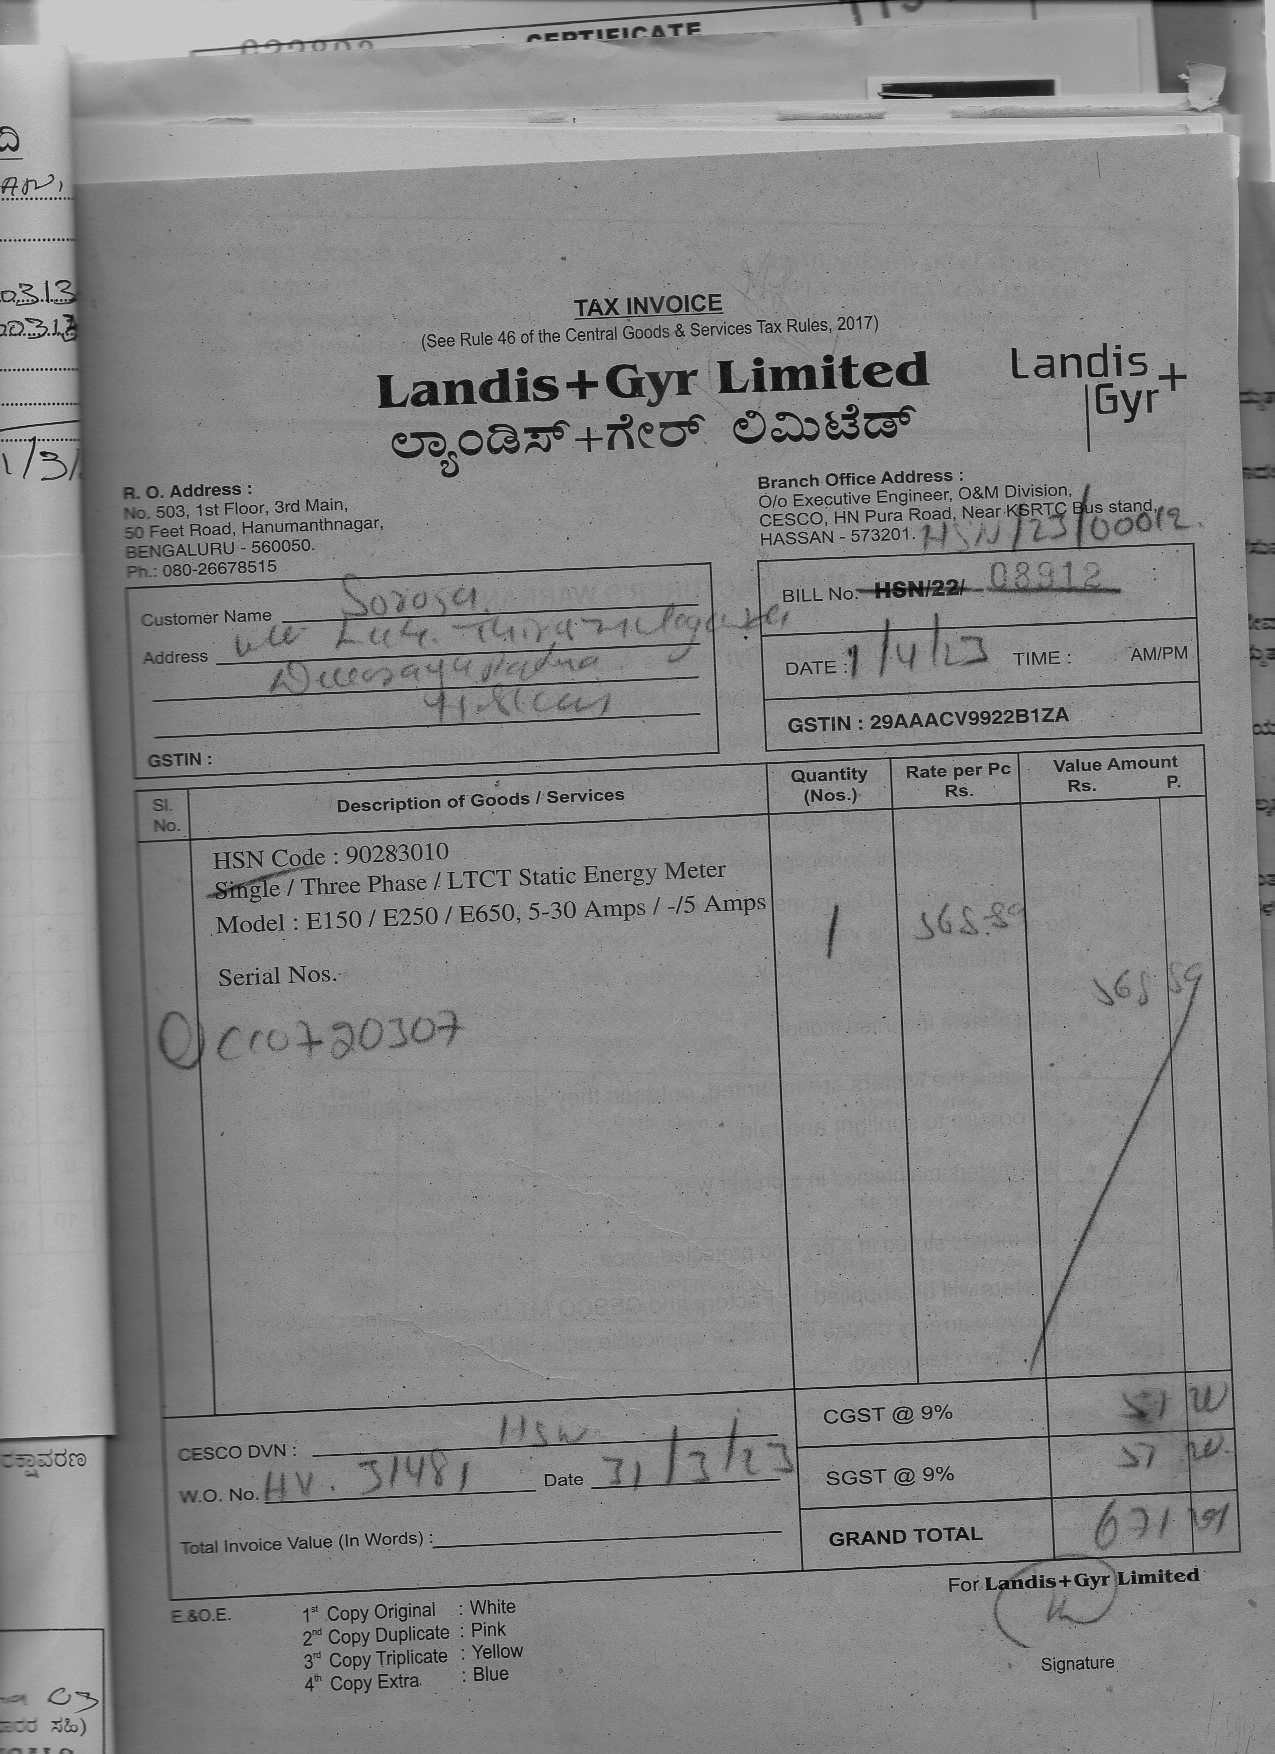 CERTIFICATE
TAX INVOICE
(See Rule 46 of the Central Goods & Services Tax Rules, 2017)
Landis+Gyr Limited
ಲ್ಯಾಂಡಿಸ್+ಗೇರ್ ಲಿಮಿಟೆಡ್
Landis
Gyr+
R. O. Address :
No. 503, 1st Floor, 3rd Main,
50 Feet Road, Hanumanthnagar,
BENGALURU - 560050.
Ph.: 080-26678515
Branch Office Address :
O/o Executive Engineer, O&M Division,
CESCO, HN Pura Road, Near KSRTC Bus stand,
HASSAN - 573201. HSN/23/00012.
Customer Name
Address
GSTIN :
BILL No. HSN/22/ 08912
DATE : 1/4/23 TIME : AM/PM
GSTIN : 29AAACV9922B1ZA
Sl. No. Description of Goods / Services Quantity (Nos.) Rate per Pc Rs. Value Amount Rs. P.
HSN Code : 90283010
Single / Three Phase / LTCT Static Energy Meter
Model : E150 / E250 / E650, 5-30 Amps / -/5 Amps 1 568.89
Serial Nos.
568 89
1) C10720307
CGST @ 9% 51 20
SGST @ 9% 51 20
GRAND TOTAL 671 29
CESCO DVN : HSN
W.O. No. HV. 31481 Date 31/3/23
Total Invoice Value (In Words) :
For Landis+Gyr Limited
Signature
E.&O.E.
1st Copy Original : White
2nd Copy Duplicate : Pink
3rd Copy Triplicate : Yellow
4th Copy Extra : Blue